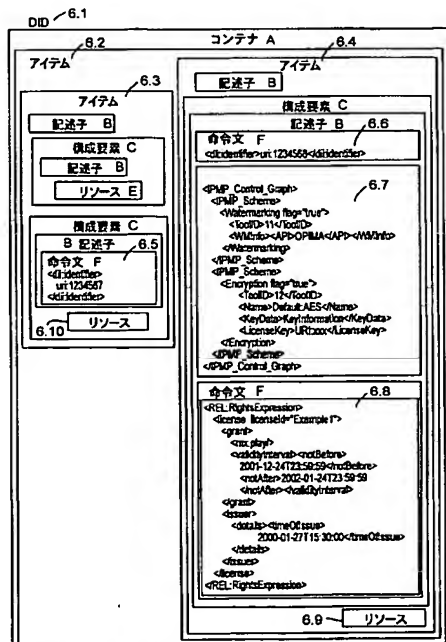 DID 6.1
コンテナ A
6.2
アイテム
6.3
アイテム
記述子 B
構成要素 C
記述子 B
リソース E
構成要素 C
B 記述子 6.5
命令文 F
<dii:identifier>
uri:1234567
</dii:identifier>
6.10
リソース
6.4
アイテム
記述子 B
構成要素 C
記述子 B 6.6
命令文 F
<dii:identifier>uri:1234568</dii:identifier>
6.7
<IPMP_Control_Graph>
<IPMP_Scheme>
<Watermarking flag="true">
<ToolID>11</ToolID>
<WMInfo><API>OPIMA</API></WMInfo>
</Watermarking>
</IPMP_Scheme>
<IPMP_Scheme>
<Encryption flag="true">
<ToolID>12</ToolID>
<Name>Default:AES</Name>
<KeyData>KeyInformation</KeyData>
<LicenseKey>URI:xxx</LicenseKey>
</Encryption>
</IPMP_Scheme>
</IPMP_Control_Graph>
命令文 F 6.8
<REL:RightsExpression>
<license licenseId="Example I">
<grant>
<mx:play/>
<validityInterval><notBefore>
2001-12-24T23:59:59</notBefore>
<notAfter>2002-01-24T23:59:59
</notAfter></validityInterval>
</grant>
<issuer>
<details><timeOfIssue>
2000-01-27T15:30:00</timeOfIssue>
</details>
</issuer>
</license>
</REL:RightsExpression>
6.9
リソース